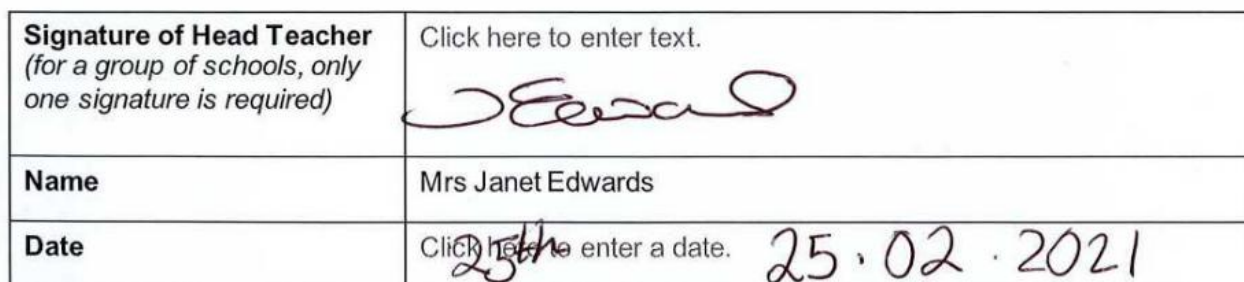 Signature of Head Teacher
(for a group of schools, only
one signature is required)
Click here to enter text.
J Edwards
Name
Mrs Janet Edwards
Date
Click here to enter a date.
25th
25.02.2021